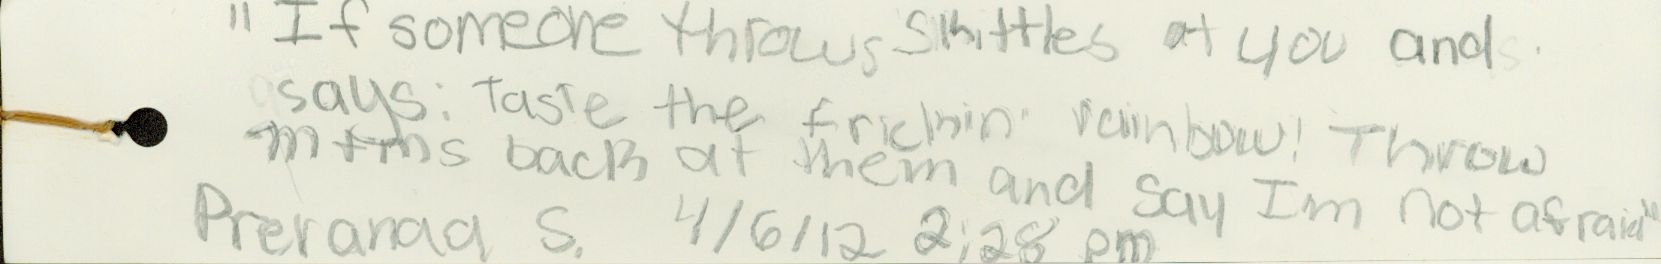 "If someone throws Skittles at you and
says: Taste the frickin' rainbow! Throw
m+ms back at them and say Im not afraid"
Preranaa S. 4/6/12 2:28 pm